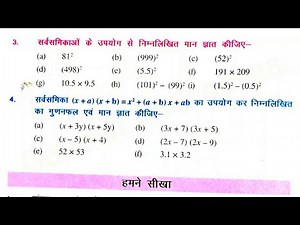 3. सर्वसमिकाओं के उपयोग से निम्नलिखित मान ज्ञात कीजिए–
(a) 81² (b) (999)² (c) (52)²
(d) (498)² (e) (5.5)² (f) 191 × 209
(g) 10.5 × 9.5 (h) (101)² – (99)² (i) (1.5)² – (0.5)²
4. सर्वसमिका (x + a) (x + b) = x² + (a + b) x + ab का उपयोग कर निम्नलिखित
का गुणनफल एवं मान ज्ञात कीजिए–
(a) (x + 3y) (x + 5y) (b) (3x + 7) (3x + 5)
(c) (x – 5) (x + 4) (d) (2x – 7) (2x – 9)
(e) 52 × 53 (f) 3.1 × 3.2
हमने सीखा